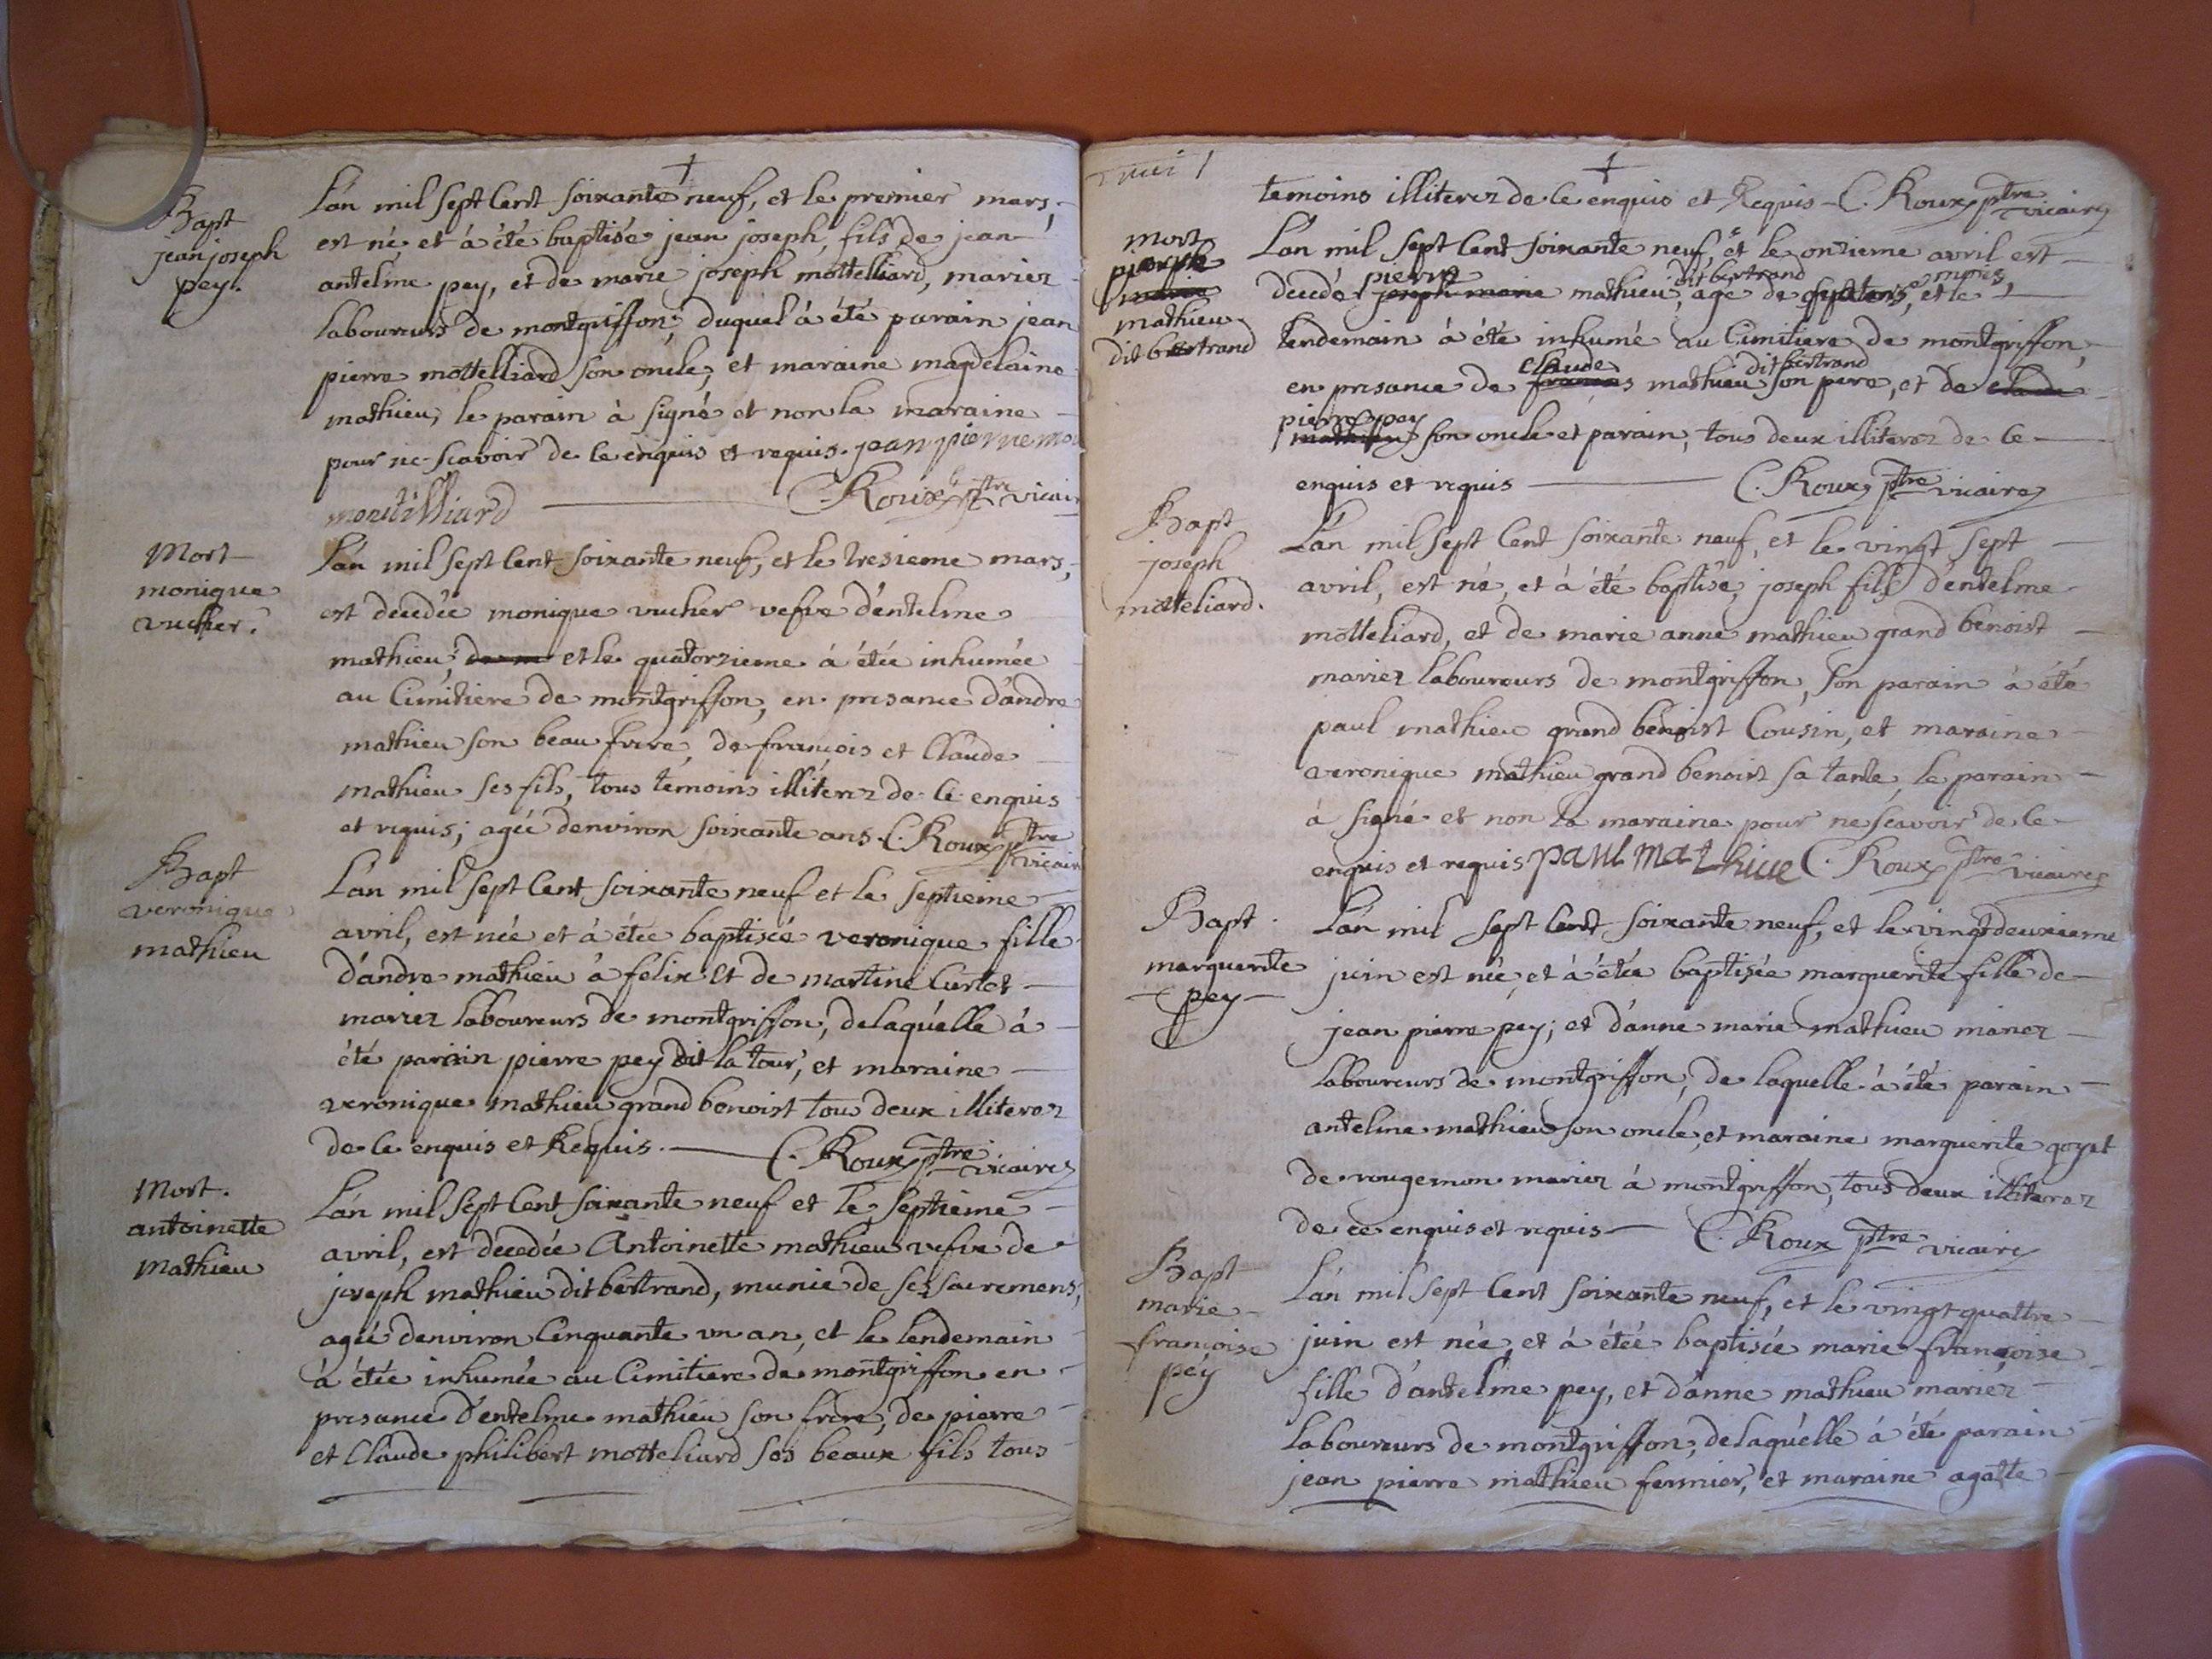 Bapt
jean joseph
pey.
L'an mil sept Cent soixante neuf, et le premier mars,
est né et à été baptisé jean joseph, fils de jean
antelme pey, et de marie joseph mottelliard, mariez
laboureurs de montgriffon, duquel à été parain jean
pierre mottelliard son oncle, et maraine magdelaine
mathieu, le parain à signé et non la maraine
pour ne scavoir de ce enquis et requis. jean pierre mou
moutilliard C. Roux ptre vicair
Mort
monique
vucher.
L'an mil sept Cent soixante neuf, et le tresieme mars,
est decedée monique vucher vefve d'entelme
mathieu, et le quatorzieme à étée inhumée
au Cimitiere de montgriffon, en presance d'andre
mathieu son beau frere, de françois et Claude
mathieu ses fils, tous temoins illiterez de ce enquis
et requis; agée denviron soixante ans. C. Roux ptre
vicair
Bapt
veronique
mathieu
L'an mil sept Cent soixante neuf et le septieme
avril, est née et à étée baptisée veronique fille
d'andre mathieu à felix et de martine Curlet
mariez laboureurs de montgriffon, de laquélle à
été parain pierre pey dit la tour, et maraine
veronique mathieu grand benoist tous deux illiterez
de ce enquis et Requis. C. Roux ptre vicaire
Mort.
antoinette
mathieu
L'an mil sept Cent soixante neuf et le septieme
avril, est décedée Antoinette mathieu vefve de
joseph mathieu dit bertrand, munie de ses sacremens,
agée denviron Cinquante un an, et le lendemain
à étée inhumée au Cimitiere de montgriffon en
presance d'entelme mathieu son frere, de pierre
et Claude philibert motteliard ses beaux fils tous
temoins illiterez de ce enquis et Requis C. Roux ptre
vicaire
mort
pierre
marie
mathieu
dit bertrand
L'an mil sept Cent soixante neuf, et le onzieme avril est
decedé pierre joseph marie mathieu dit bertrand, age de sept mois, et le
lendemain à été inhumé au Cimitiere de montgriffon,
en presance de claude françois mathieu dit bertrand son pere, et de claude
pierre pey mathieu son oncle et parain, tous deux illiterez de ce
enquis et requis C. Roux ptre vicaire
Bapt
joseph
motteliard.
L'an mil sept Cent soixante neuf, et le vingt sept
avril, est né, et à été baptisé, joseph fils d'entelme
motteliard, et de marie anne mathieu grand benoist
mariez laboureurs de montgriffon, son parain à été
paul mathieu grand benoist Cousin, et maraine
veronique mathieu grand benoist sa tante, le parain
à signé et non la maraine pour ne scavoir de ce
enquis et requis paul mathiue C. Roux ptre vicaire
Bapt
marguerite
pey
L'an mil sept Cent soixante neuf, et le vingt deuxieme
juin est née, et à étée baptisée marguerite fille de
jean pierre pey, et d'anne marie mathieu mariez
laboureurs de montgriffon, de laquelle à été parain
antelme mathieu son oncle, et maraine marguerite goyet
de rougemon mariez à montgriffon, tous deux illiterez
de ce enquis et requis C. Roux ptre vicaire
Bapt
marie
françoise
pey
L'an mil sept Cent soixante neuf, et le vingt quattre
juin est née, et à étée baptisée marie françoise
fille d'antelme pey, et d'anne mathieu mariez
laboureurs de montgriffon, de laquélle à été parain
jean pierre mathieu fermier, et maraine agatte